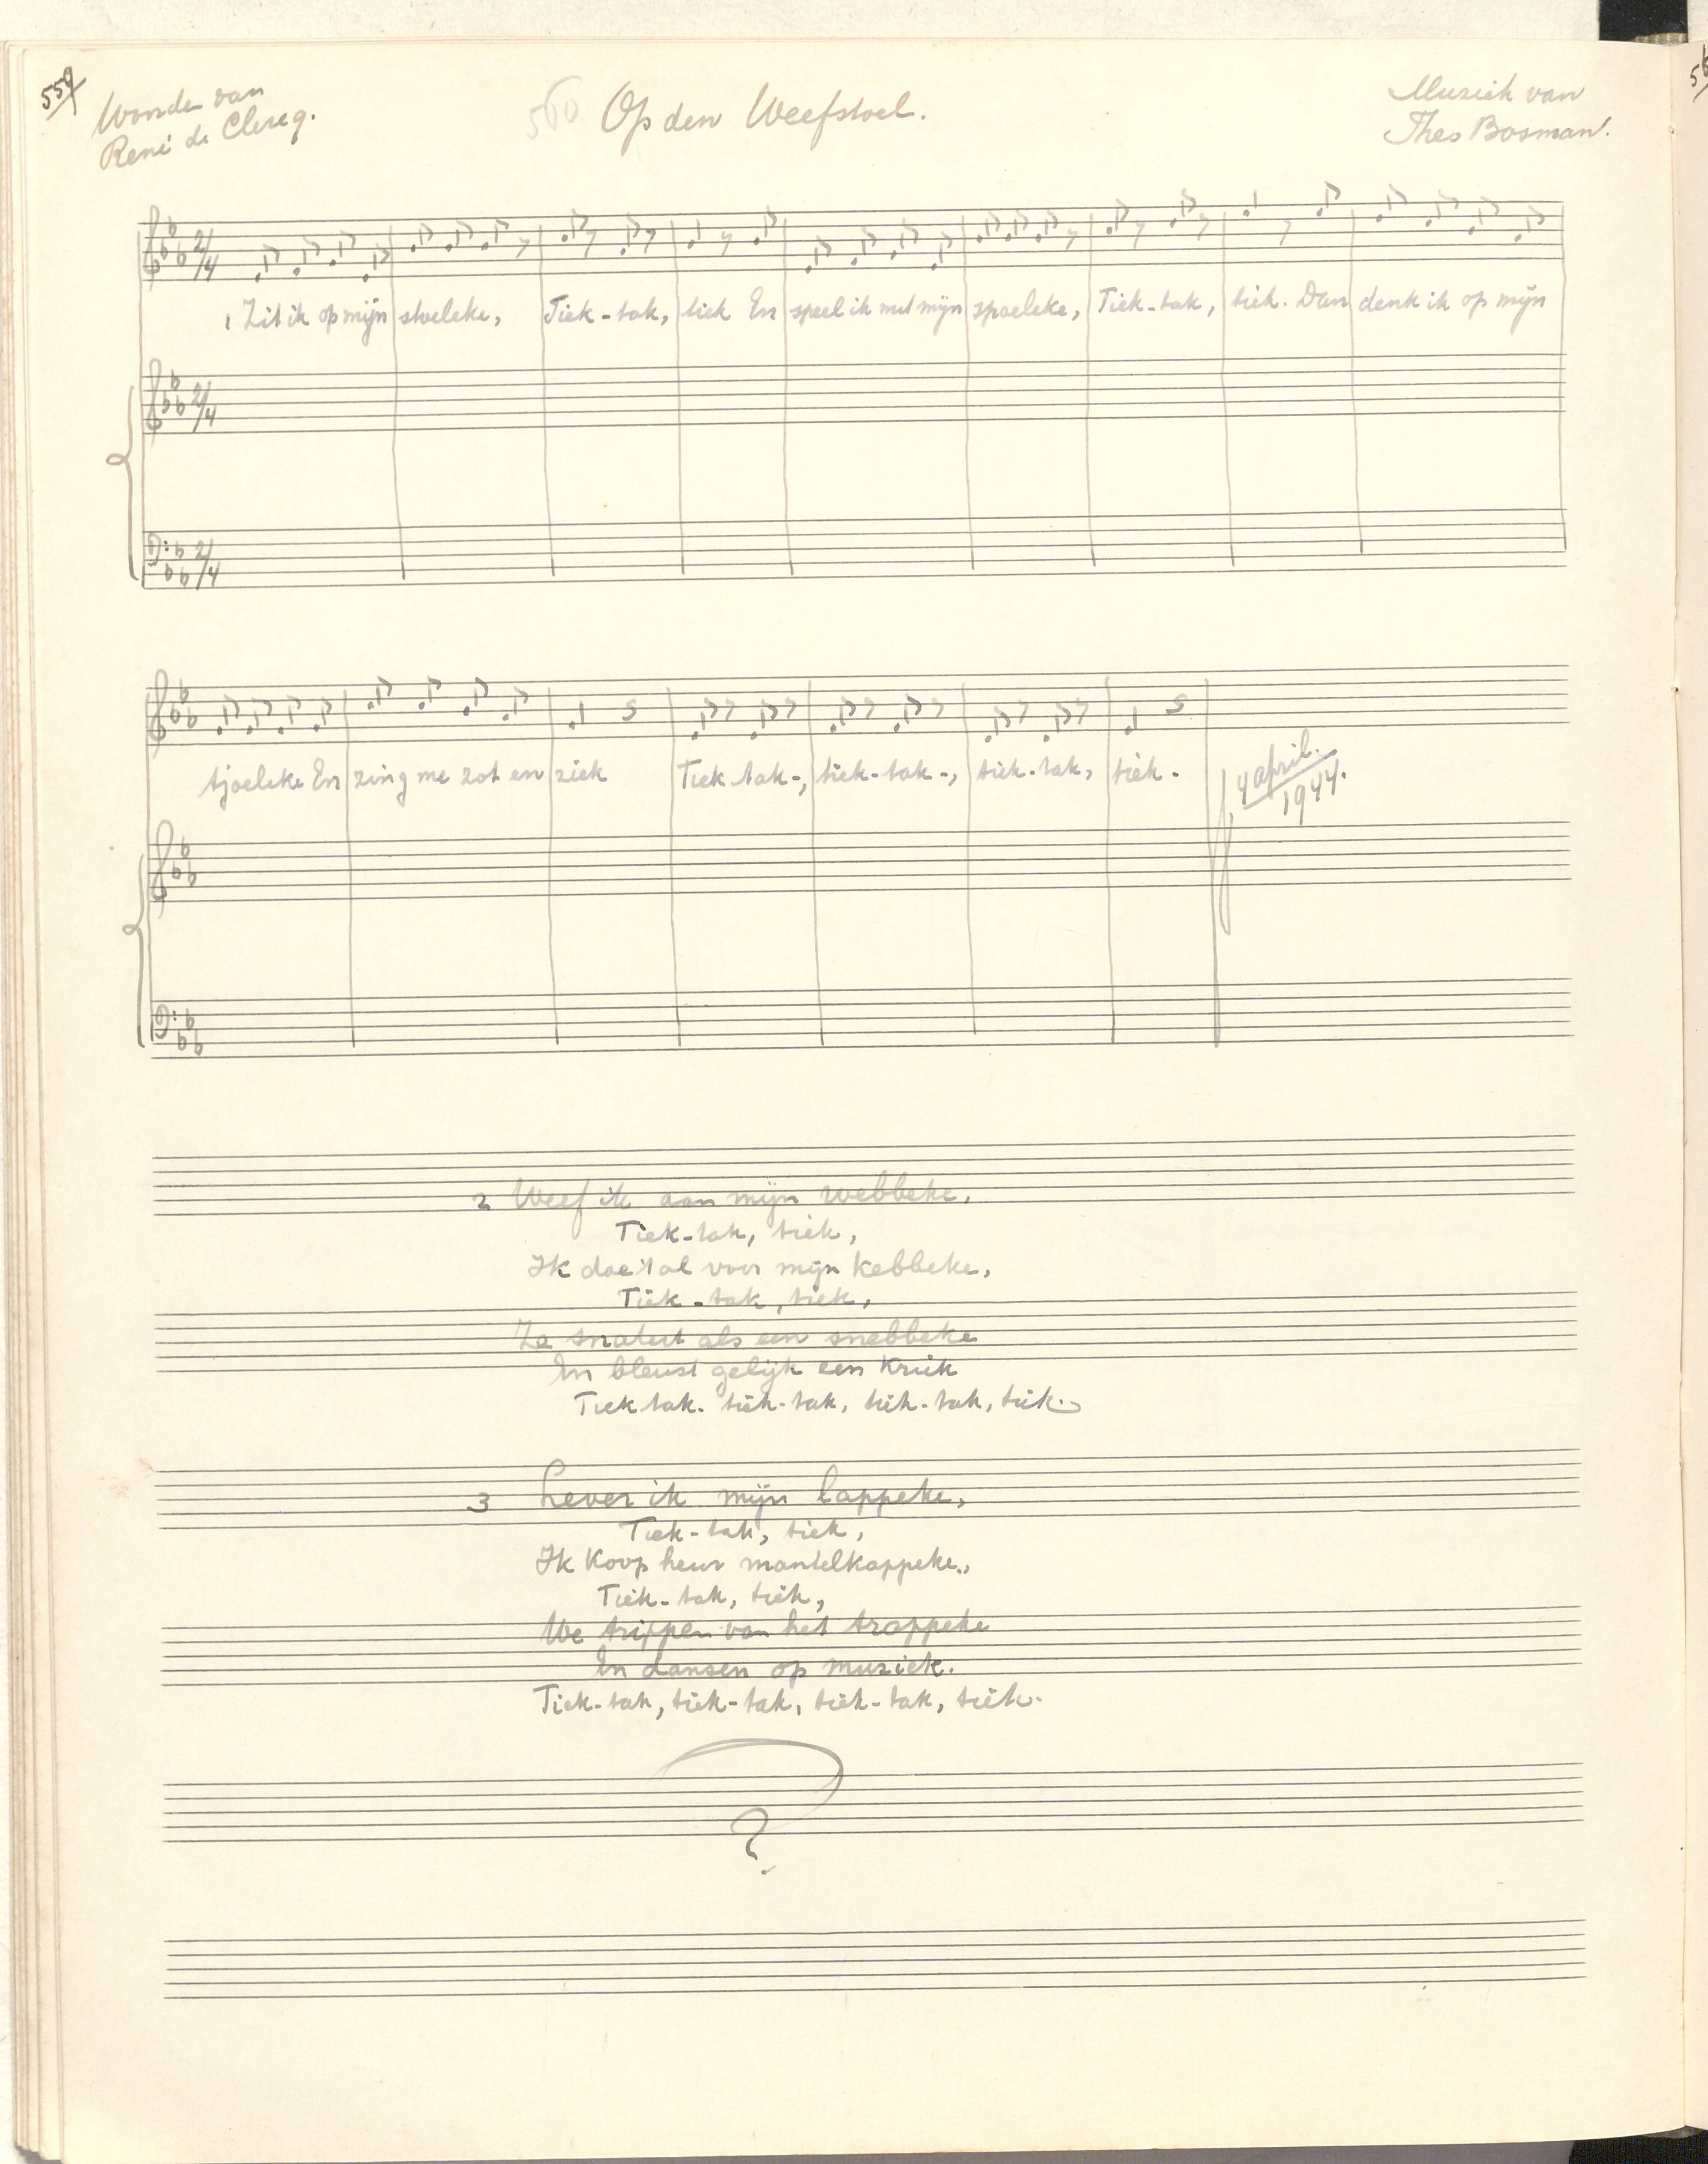 559
Woorden van
René de Clercq.
560 Op den Weefstoel.
Muziek van
Theo Bosman.
2/4
1 Zit ik op mijn stoeleke, Tiek-tak, tiek En speel ik met mijn spoeleke, Tiek-tak, tiek. Dan denk ik op mijn
2/4
2/4
sjoeleke En zing me zot en ziek Tiek tak-, tiek-tak-, tiek-tak, tiek.
4 april.
1944.
2 Weef ik aan mijn webbeke,
Tiek-tak, tiek,
Ik doe't al voor mijn kebbeke,
Tiek-tak, tiek,
Ze snatert als een snebbeke
En bleust gelijk een kriek
Tiek tak. tiek-tak, tiek-tak, tiek.
3 Lever ik mijn lappeke,
Tiek-tak, tiek,
Ik koop heur mantelkappeke,
Tiek-tak, tiek,
We trippen van het trappeke
En dansen op muziek.
Tiek-tak, tiek-tak, tiek-tak, tiek.
?